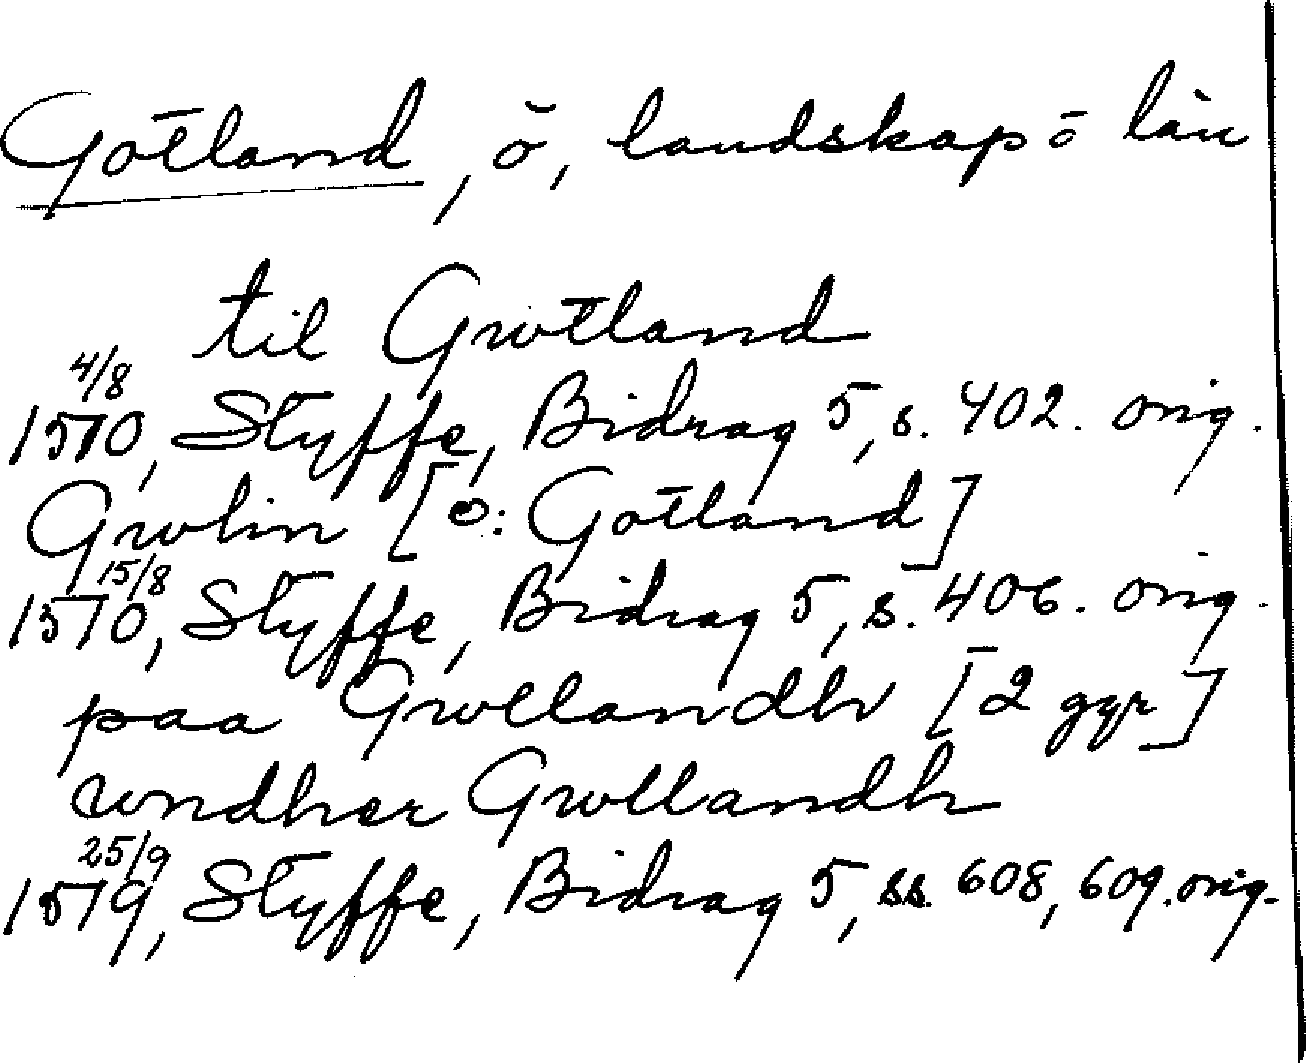 Gotland, ö, landskap o län
til Gwtland
4/8
1510, Styffe, Bidrag 5, s. 402. orig.
Gwlin [ɔ: Gotland]
15/8
1510, Styffe, Bidrag 5, s. 406. orig.
paa Gwllandh [2 ggr]
wndher Gwllandh
25/9
1519, Styffe, Bidrag 5, ss. 608, 609. orig.